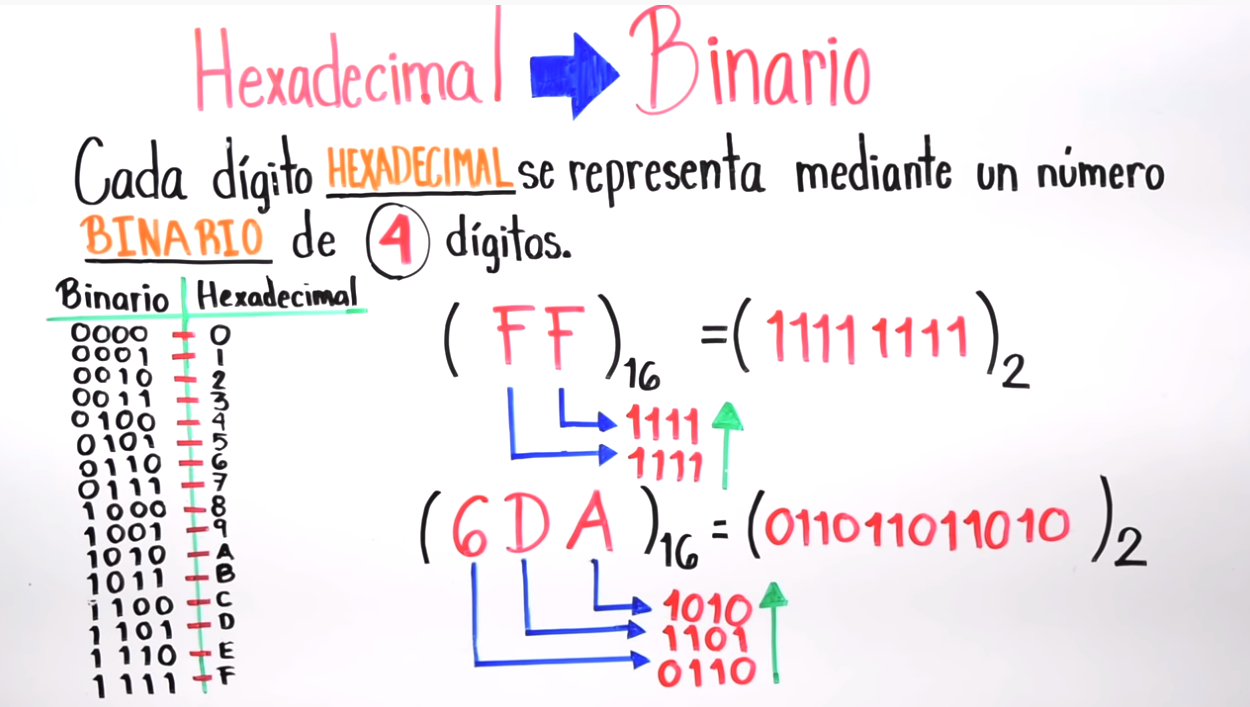 Hexadecimal Binario
Cada dígito HEXADECIMAL se representa mediante un número
BINARIO de 4 dígitos.
Binario Hexadecimal
0000 0
0001 1
0010 2
0011 3
0100 4
0101 5
0110 6
0111 7
1000 8
1001 9
1010 A
1011 B
1100 C
1101 D
1110 E
1111 F
(FF)16 = (1111 1111)2
1111
1111
(6DA)16 = (011011011010)2
1010
1101
0110